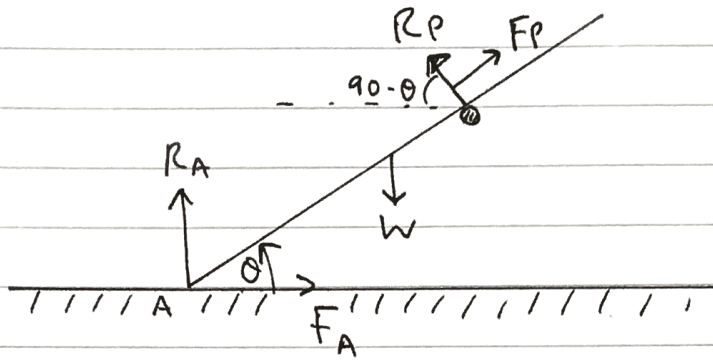 RP FP
90-θ
RA
W
θ
A
FA